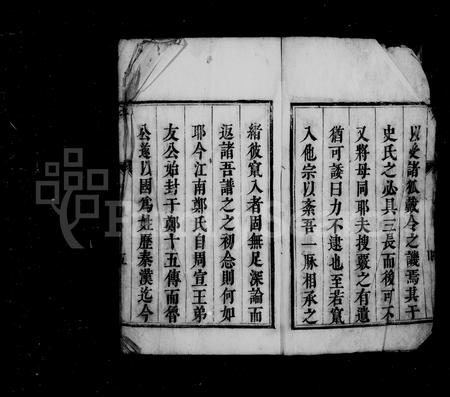 以受諸狐裁令之譏焉其于
史氏之必具三長而後可不
又將毋同耶夫搜嚴之有遺
猶可諉曰力不逮也至若竄
入他宗以紊吾一脈相承之
緒彼竄入者固無足深論而
返諸吾譜之之初念則何如
耶今江南鄭氏自周宣王弟
友公始封于鄭十五傳而晉
公遂以國爲姓歷秦漢迄今